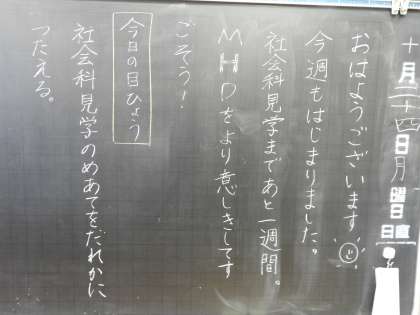 十月二十四日月曜日
日直
おはようございます
今週もはじまりました。
社会科見学まであと一週間。
MHDをより意しきしてす
ごそう!
今日の目ひょう
社会科見学のめあてをだれかに
つたえる。